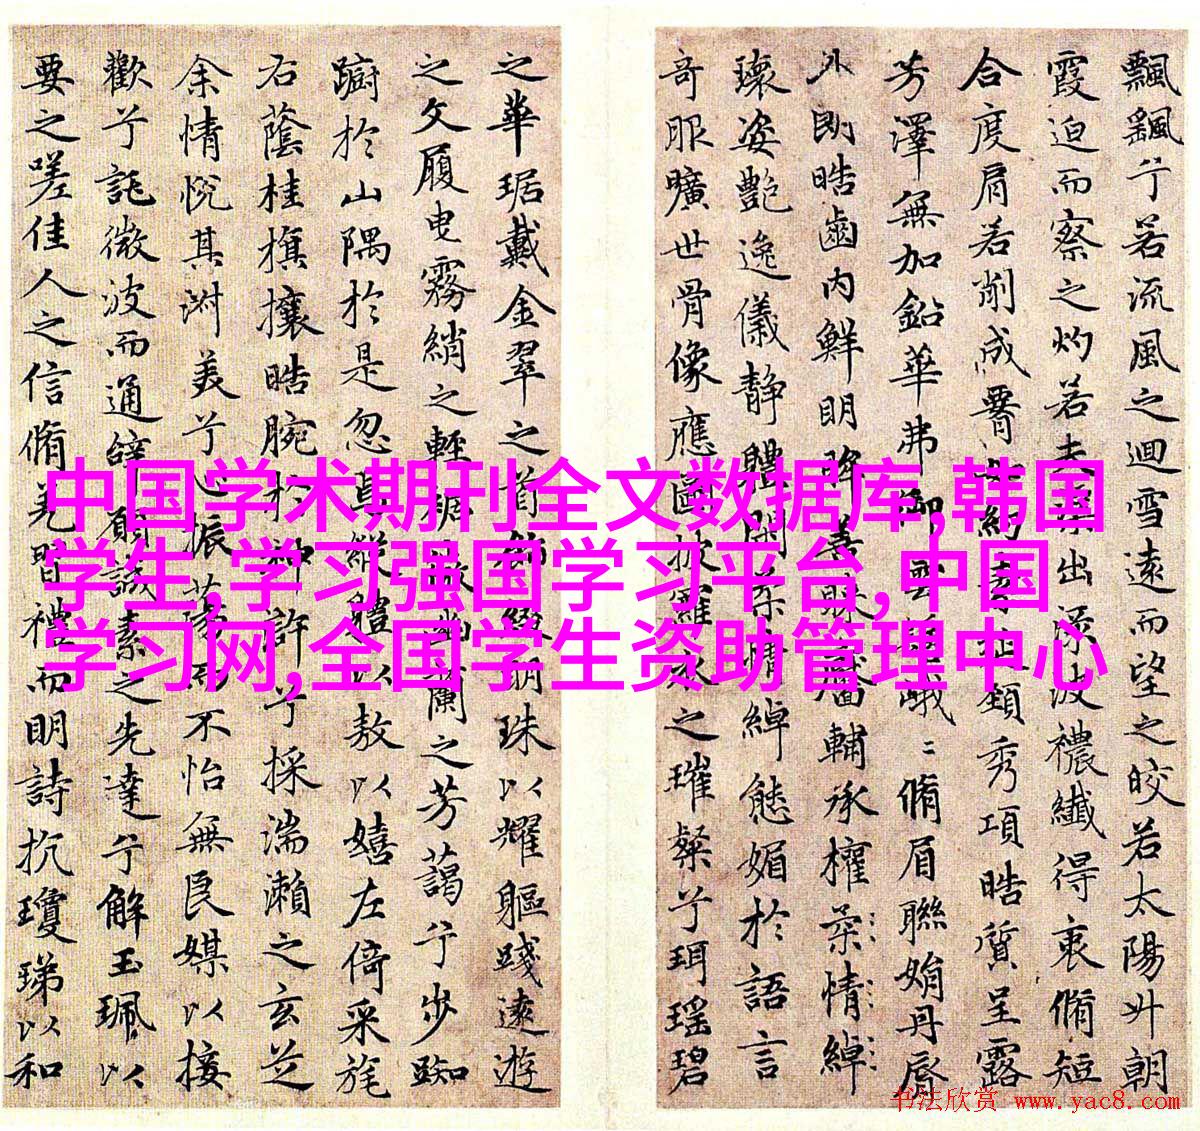 飄飖兮若流風之迴雪遠而望之皎若太陽升朝
霞迫而察之灼若夫蕖出淥波襛纖得衷脩短
合度肩若削成腰如約素延頸秀項皓質呈露
芳澤無加鉛華弗御雲髻峩峨〻脩眉聯娟丹脣
外朗皓齒內鮮明眸善睞靨輔承權柔情綽
瓌姿艷逸儀靜體閑柔情綽態媚於語言
奇服曠世骨像應圖披羅衣之璀粲兮珥瑶碧
之華琚戴金翠之首飾綴明珠以耀軀踐遠遊
之文履曳霧綃之輕裾微幽蘭之芳藹兮步踟
躕於山隅於是忽焉縱體以敖以嬉左倚采旄
右蔭桂旗攘皓腕於神滸兮採湍瀨之玄芝
余情悅其淑美兮心振蕩而不怡無良媒以接
歡兮託微波而通辭願誠素之先達兮解玉珮以
要之嗟佳人之信脩羌習禮而明詩抗瓊珶以和
中国学术期刊全文数据库,韩国
学生,学习强国学习平台,中国
学习网,全国学生资助管理中心
书法欣赏 www.yac8.com